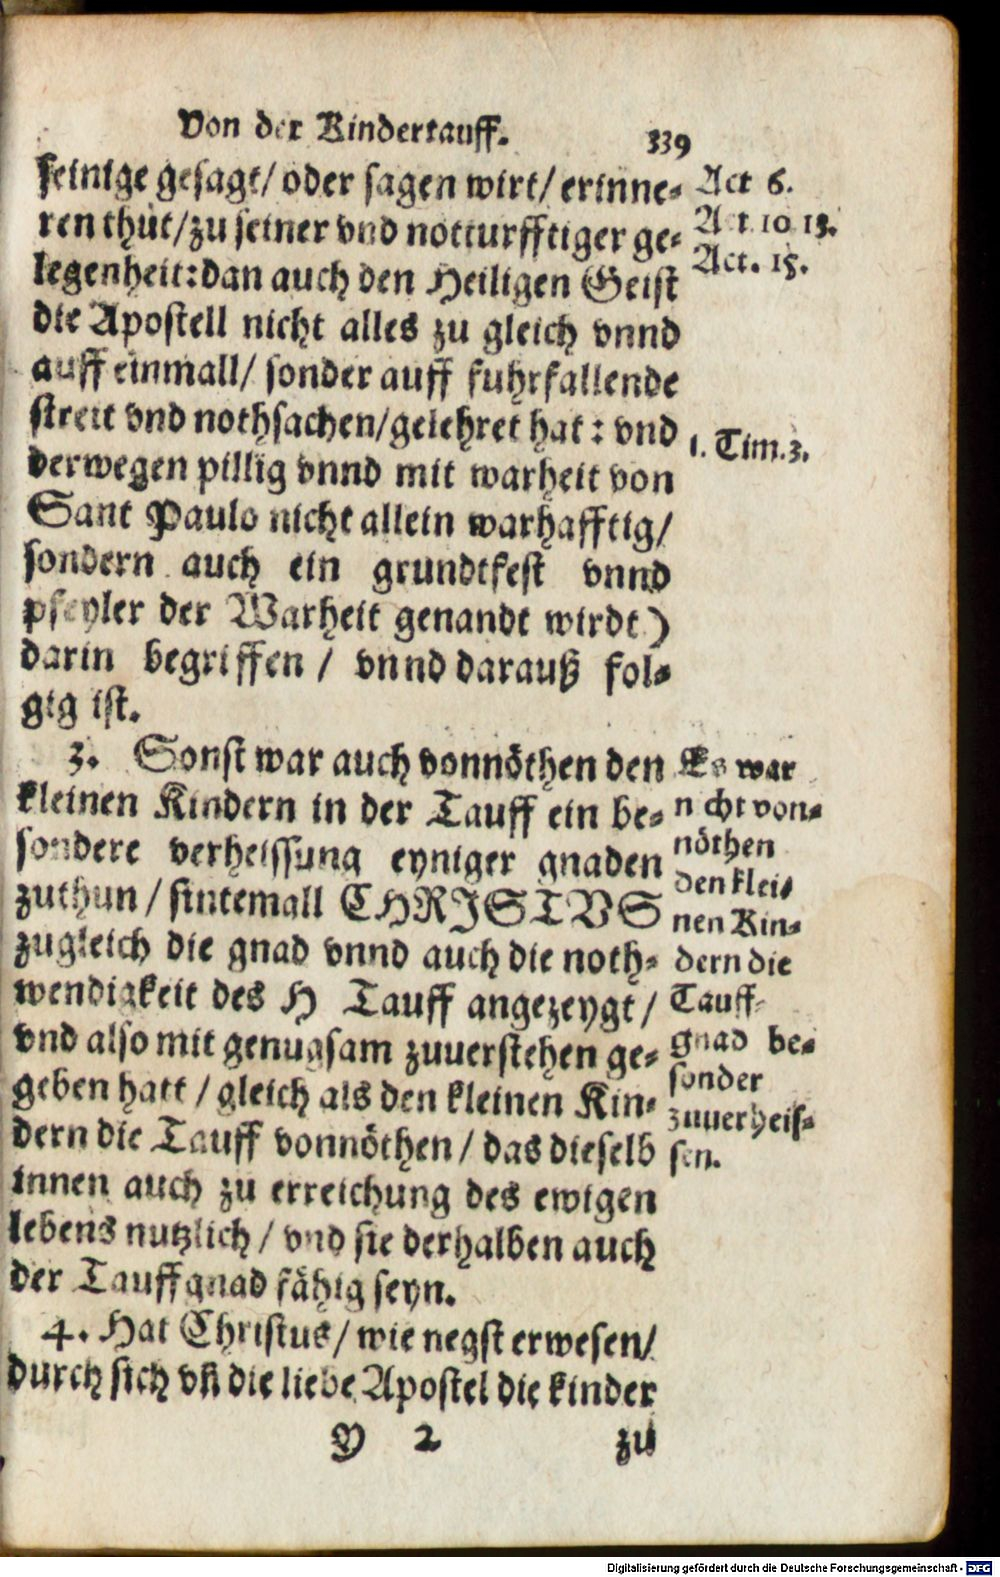 Von der Kindertauff. 339
seinige gesagt/ oder sagen wirt/ erinne⸗
ren thut/zu seiner vnd notturfftiger ge⸗
legenheit:dan auch den Heiligen Geist
die Apostell nicht alles zu gleich vnnd
auff einmall/ sonder auff fuhrfallende
streit vnd nothsachen/gelehret hat: vnd
derwegen pillig vnnd mit warheit von
Sant Paulo nicht allein warhafftig/
sondern auch ein grundtfest vnnd
pfeyler der Warheit genandt wirdt)
darin begriffen / vnnd darauß fol⸗
gig ist.
3. Sonst war auch vonnöthen den
kleinen Kindern in der Tauff ein be⸗
sondere verheissung eyniger gnaden
zuthun / sintemall CHRISTVS
zugleich die gnad vnnd auch die noth⸗
wendigkeit des H Tauff angezeygt /
vnd also mit genugsam zuuerstehen ge⸗
geben hatt / gleich als den kleinen Kin⸗
dern die Tauff vonnöthen / das dieselb
innen auch zu erreichung des ewigen
lebens nutzlich / vnd sie derhalben auch
der Tauffgnad fähig seyn.
4. Hat Christus/ wie negst erwesen/
durch sich vñ die liebe Apostel die kinder
Y 2 zu
Act 6.
Act 10 13.
Act. 15.
1. Tim. 3.
Es war
nicht von⸗
nöthen
den klei⸗
nen Kin⸗
dern die
Tauff⸗
gnad be⸗
sonder
zuuerheis⸗
sen.
Digitalisierung gefördert durch die Deutsche Forschungsgemeinschaft - DFG